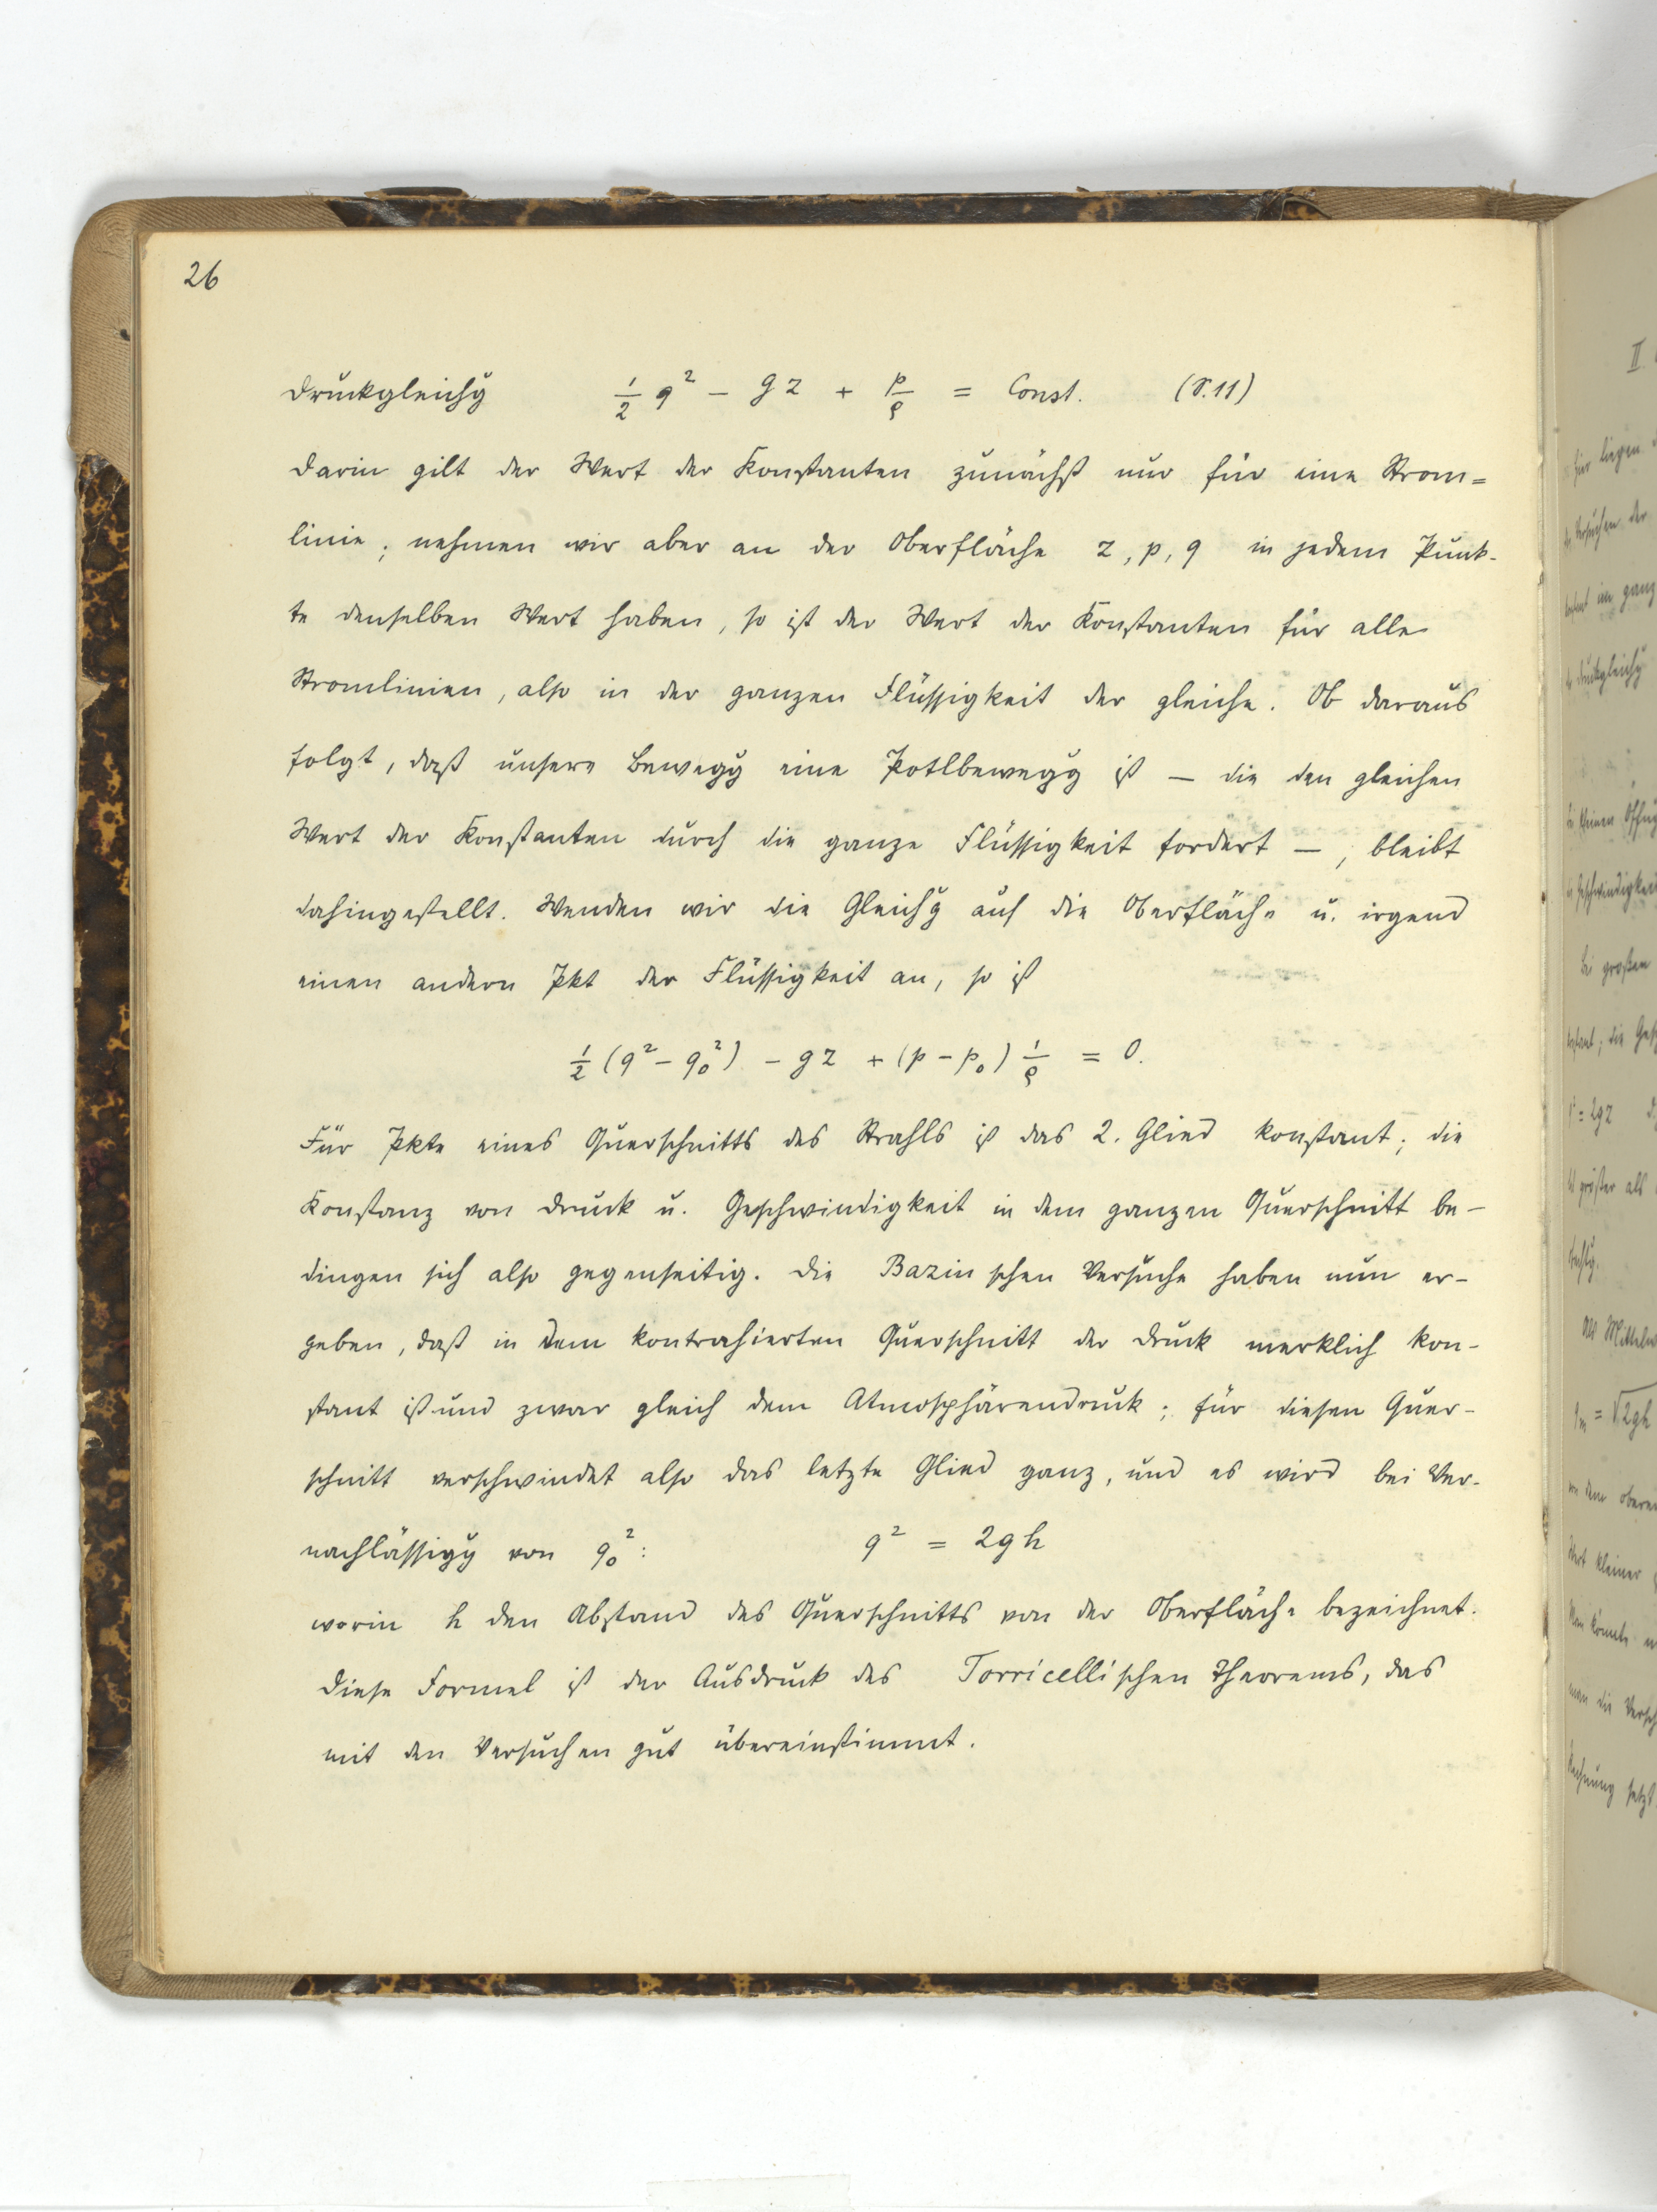 26
Druckgleichg ½ q² − gz + p/ρ = Const. (S.11)
Darin gilt der Wert der Konstanten zunächst nur für eine Strom=
linie; nehmen wir aber an der Oberfläche z, p, q in jedem Punk-
te denselben Wert haben, so ist der Wert der Konstanten für alle
Stromlinien, also in der ganzen Flüssigkeit der gleiche. Ob daraus
folgt, daß unsere Bewegg eine Potlbewegg ist — die den gleichen
Wert der Konstanten durch die ganze Flüssigkeit fordert —, bleibt
dahingestellt. Wenden wir die Gleichg auf die Oberfläche u. irgend
einen andern Pkt der Flüssigkeit an, so ist
½ (q² − q₀²) − gz + (p − p₀) 1/ρ = 0.
Für Pkte eines Querschnitts des Strahls ist das 2. Glied konstant; die
Konstanz von Druck u. Geschwindigkeit in dem ganzen Querschnitt be-
dingen sich also gegenseitig. Die Bazinschen Versuche haben nun er-
geben, daß in dem kontrahierten Querschnitt der Druck merklich kon-
stant ist und zwar gleich dem Atmosphärendruck; für diesen Quer-
schnitt verschwindet also das letzte Glied ganz, und es wird bei Ver-
nachlässigg von q₀²: q² = 2gh
worin h den Abstand des Querschnitts von der Oberfläche bezeichnet.
Diese Formel ist der Ausdruck des Torricellischen Theorems, das
mit den Versuchen gut übereinstimmt.
II
für liegen
Versuchen der
im ganz
Druckgleichg
kleinen Öffng
Geschwindigkei
bei großen
= 2gz
größer als
Als Mittelw
= √2gh
dem obere
Wert kleiner
Man könnte
man die
Rechnung setzt